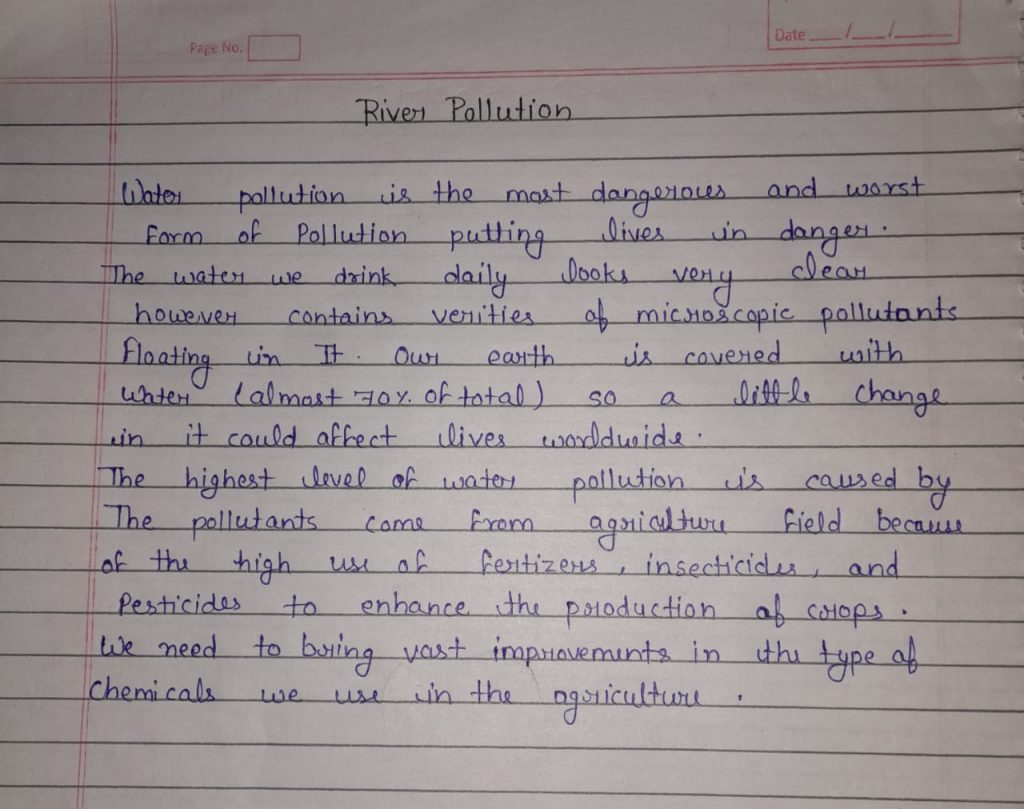 Page No.
Date __/__/____
River Pollution
Water pollution is the most dangerous and worst
form of Pollution putting lives in danger.
The water we drink daily looks very clean
however contains verities of microscopic pollutants
floating in It. Our earth is covered with
water (almost 70% of total) so a little change
in it could affect lives worldwide.
The highest level of water pollution is caused by
The pollutants come from agriculture field because
of the high use of fertizers, insecticides, and
Pesticides to enhance the production of crops.
We need to bring vast improvements in the type of
Chemicals we use in the agriculture.